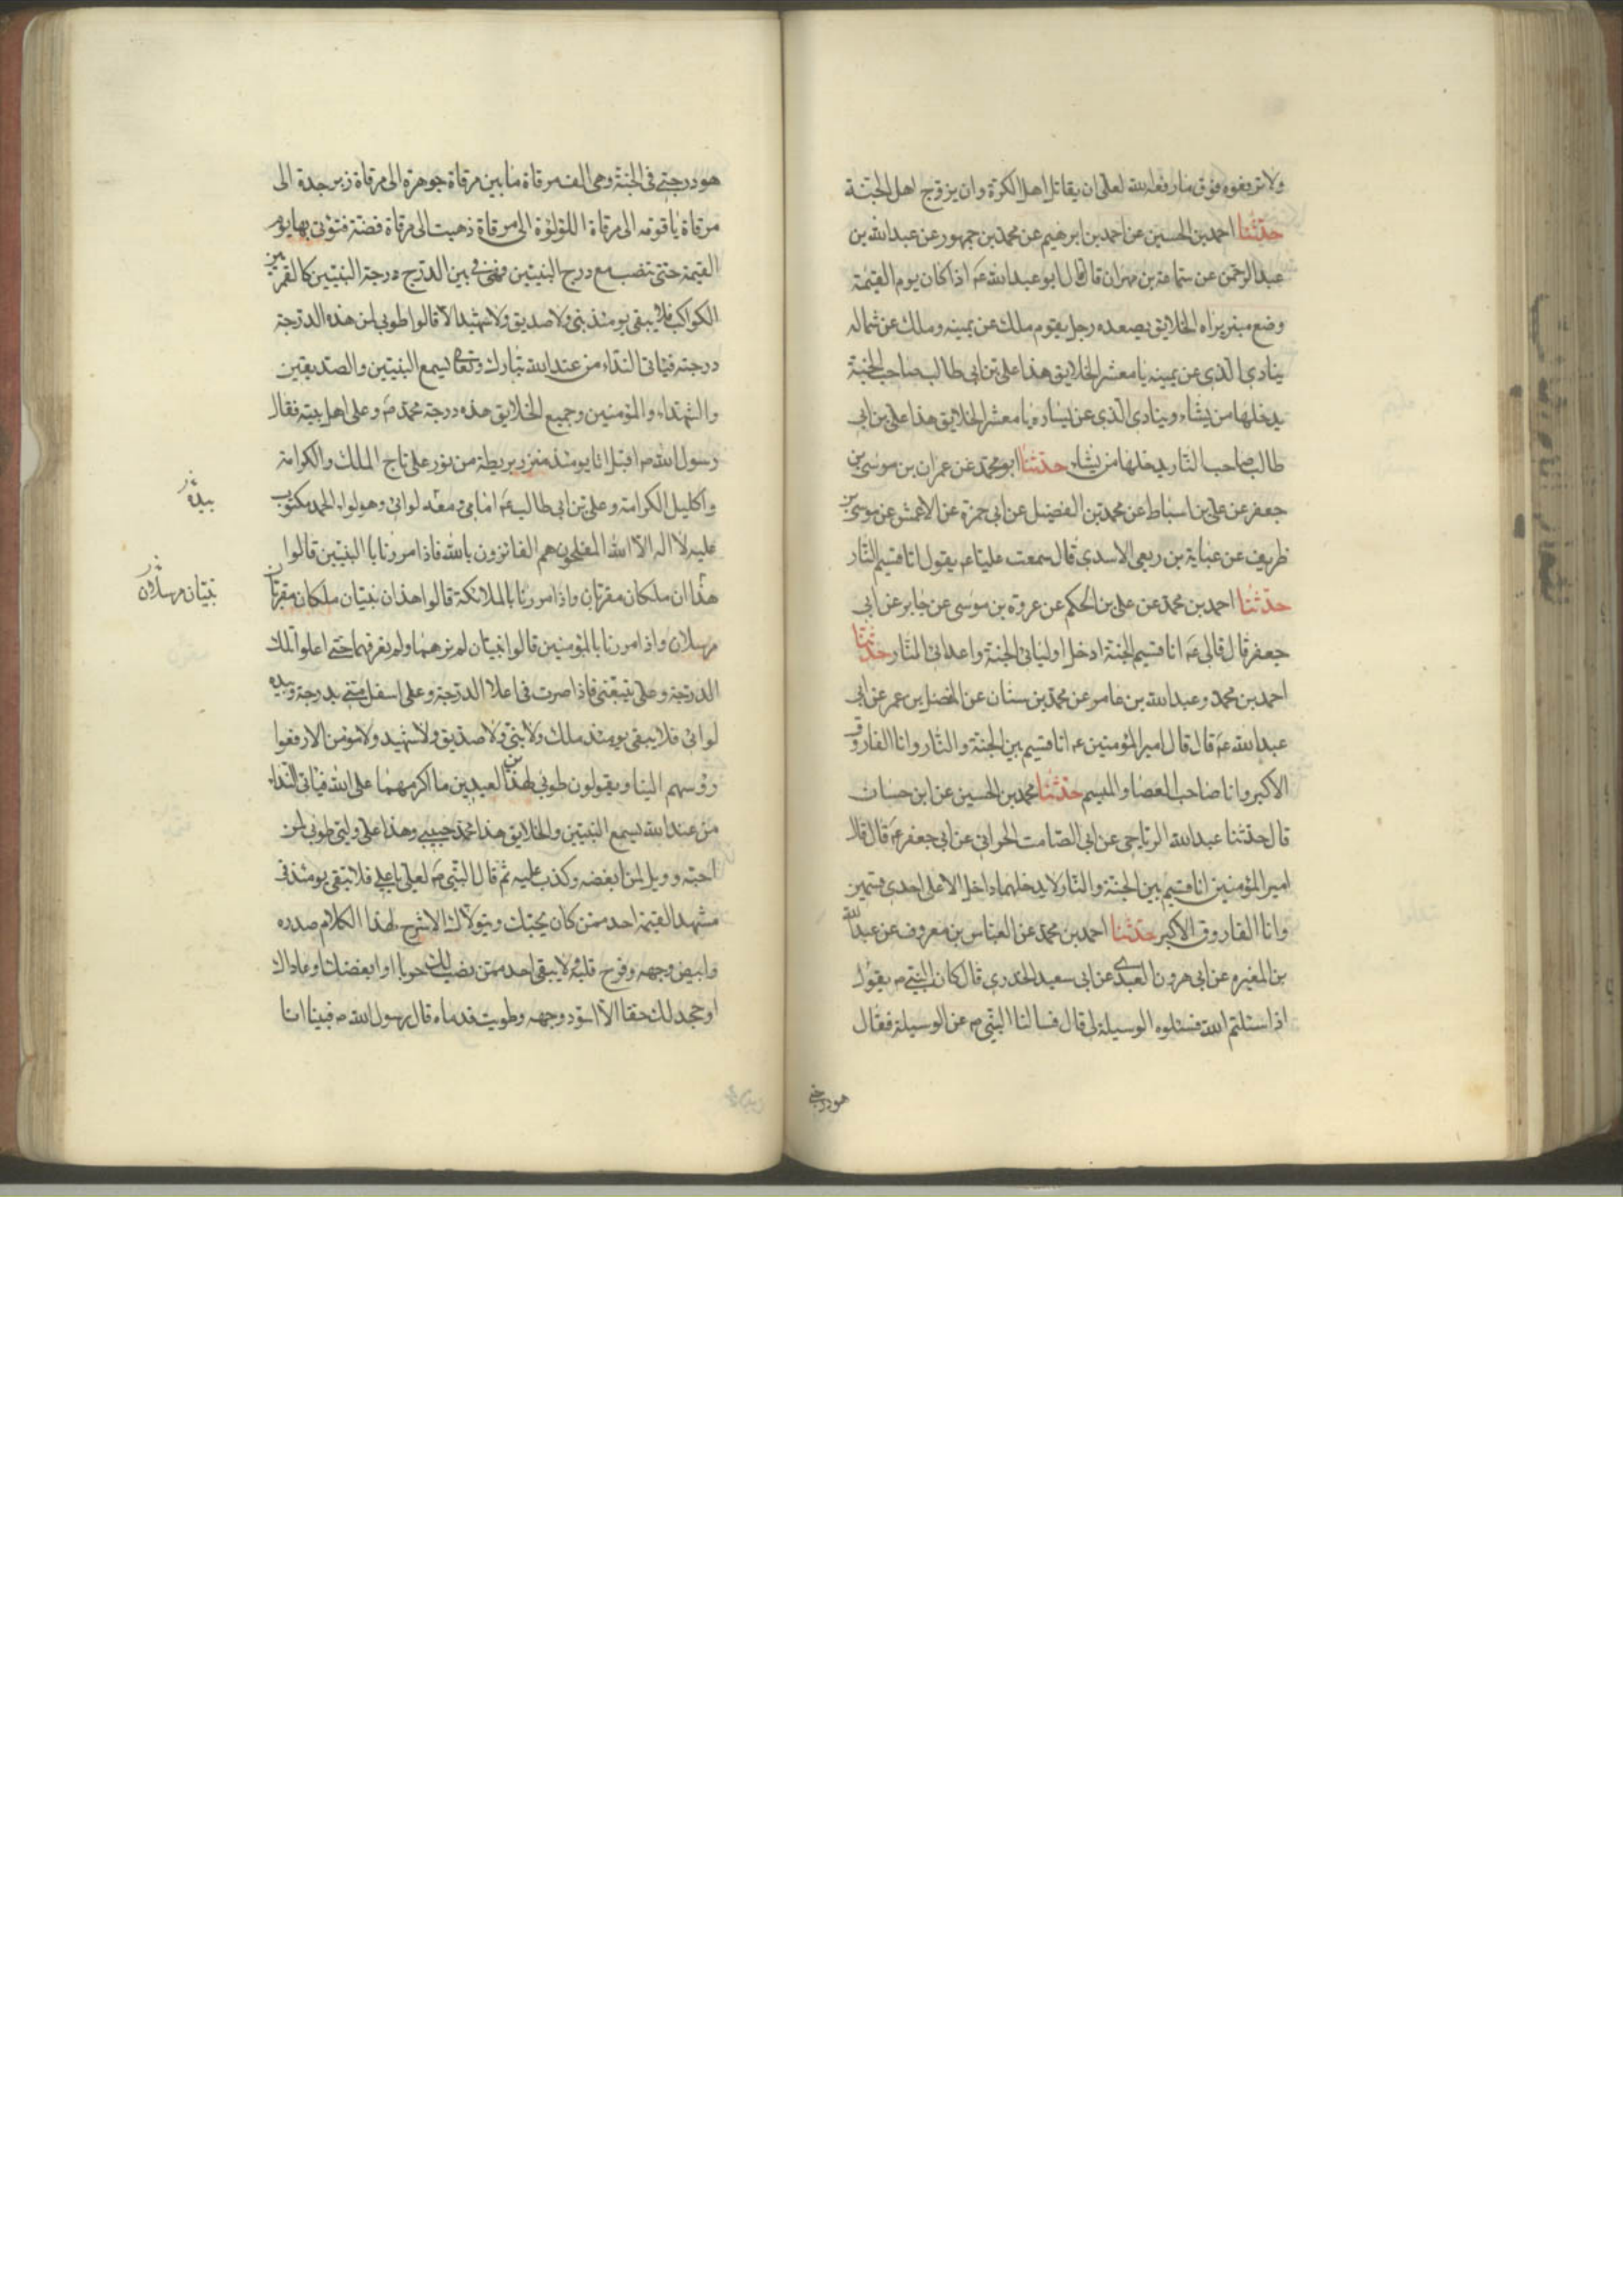 ولا ترفعوه فوق ما رفعه الله لعلى ان يقاتل اهل الكرة وان يزوج اهل الجنة
حدثنا احمد بن الحسين عن احمد بن ابرهيم عن محمد بن جمهور عن عبدالله بن
عبدالرحمن عن سماعة بن مهران قال قال ابو عبدالله عم اذا كان يوم القيمة
وضع منبر يراه الخلايق يصعده رجل يقوم ملك عن يمينه وملك عن شماله
ينادى الذى عن يمينه يا معشر الخلايق هذا على بن ابى طالب صاحب الجنة
يدخلها من يشاء وينادى الذى عن يساره يا معشر الخلايق هذا على بن ابى
طالب صاحب النار يدخلها من يشاء حدثنا ابو محمد عن عمران بن موسى بن
جعفر عن على بن اسباط عن محمد بن الفضيل عن ابى حمزة عن الاعمش عن موسى بن
ظريف عن عباية بن ربعى الاسدى قال سمعت عليا عم يقول انا قسيم النار
حدثنا احمد بن محمد عن على بن الحكم عن عروة بن موسى عن جابر عن ابى
جعفر قال قال لى عم انا قسيم الجنة ادخل اوليائى الجنة واعدائى النار حدثنا
احمد بن محمد وعبدالله بن عامر عن محمد بن سنان عن المفضل بن عمر عن ابى
عبدالله عم قال قال امير المؤمنين عم انا قسيم بين الجنة والنار وانا الفاروق
الاكبر وانا صاحب العصا والميسم حدثنا محمد بن الحسين عن ابن حسان
قال حدثنا عبدالله الرياحى عن ابى الصامت الحوانى عن ابى جعفر عم قال قال
امير المؤمنين انا قسيم بين الجنة والنار لا يدخلهما داخل الا على احدى قسمين
وانا الفاروق الاكبر حدثنا احمد بن محمد عن العباس بن معروف عن عبدالله
بن المغيره عن ابى هرون العبدى عن ابى سعيد الخدرى قال كان النبى ص يقول
اذا سئلتم الله فسئلوه الوسيلة لى قال فسالنا النبى ص عن الوسيلة فقال
هو درجتى
هو درجتى فى الجنة وهى الف مرقاة ما بين مرقاة جوهرة الى مرقاة زبرجدة الى
مرقاة ياقوته الى مرقاة اللؤلؤة الى مرقاة ذهب الى مرقاة فضة فتؤتى بها يوم
القيمة حتى تنصب مع درج النبيين فهى فى بين الدرج درجة النبيين كالقمر بين
الكواكب فلا يبقى يومئذ نبى ولا صديق ولا شهيد الا قالوا طوبى لمن هذه الدرجة
درجته فياتى النداء من عند الله تبارك وتعالى يسمع النبيين والصديقين
والشهداء والمؤمنين وجميع الخلايق هذه درجة محمد ص وعلى اهل بيته فقال
رسول الله ص اقبل انا يومئذ متزر بريطة من نور على تاج الملك والكرامة
واكليل الكرامة وعلى بن ابى طالب عم امامى معه لوائى وهو لواء الحمد مكتوب
بيده
عليه لا اله الا الله المفلحون هم الفائزون بالله فاذا مررنا با النبيين قالوا
هذا ان ملكان مقربان واذا مررنا بالملائكة قالوا هذان نبيان ملكان مقربان
نبيان مرسلان
مرسلان واذا مررنا بالمؤمنين قالوا نبيان لم نرهما ولم نعرفهما حتى اعلوا تلك
الدرجة وعلى يتبعنى فاذا صرت فى اعلا الدرجة وعلى اسفل منى بدرجة وبيده
لوائى فلا يبقى يومئذ ملك ولا نبى ولا صديق ولا شهيد ولا مؤمن الا رفعوا
رؤسهم الينا ويقولون طوبى لهذين العبدين ما اكرمهما على الله فياتى النداء
من عند الله يسمع النبيين والخلايق هذا محمد حبيبى وهذا على وليى طوبى لمن
احبه وويل لمن ابغضه وكذب عليه ثم قال النبى ص لعلى يا على فلا يبقى يومئذ فى
مشهد القيمة احد ممن كان يحبك ويتولاك الا شرح لهذا الكلام صدره
وابيض وجهه وفرح قلبه ولا يبقى احد ممن نصب لك حربا او ابغضك او عاداك
او جحد لك حقا الا اسود وجهه وطويت قدماه قال رسول الله ص فبينا انا